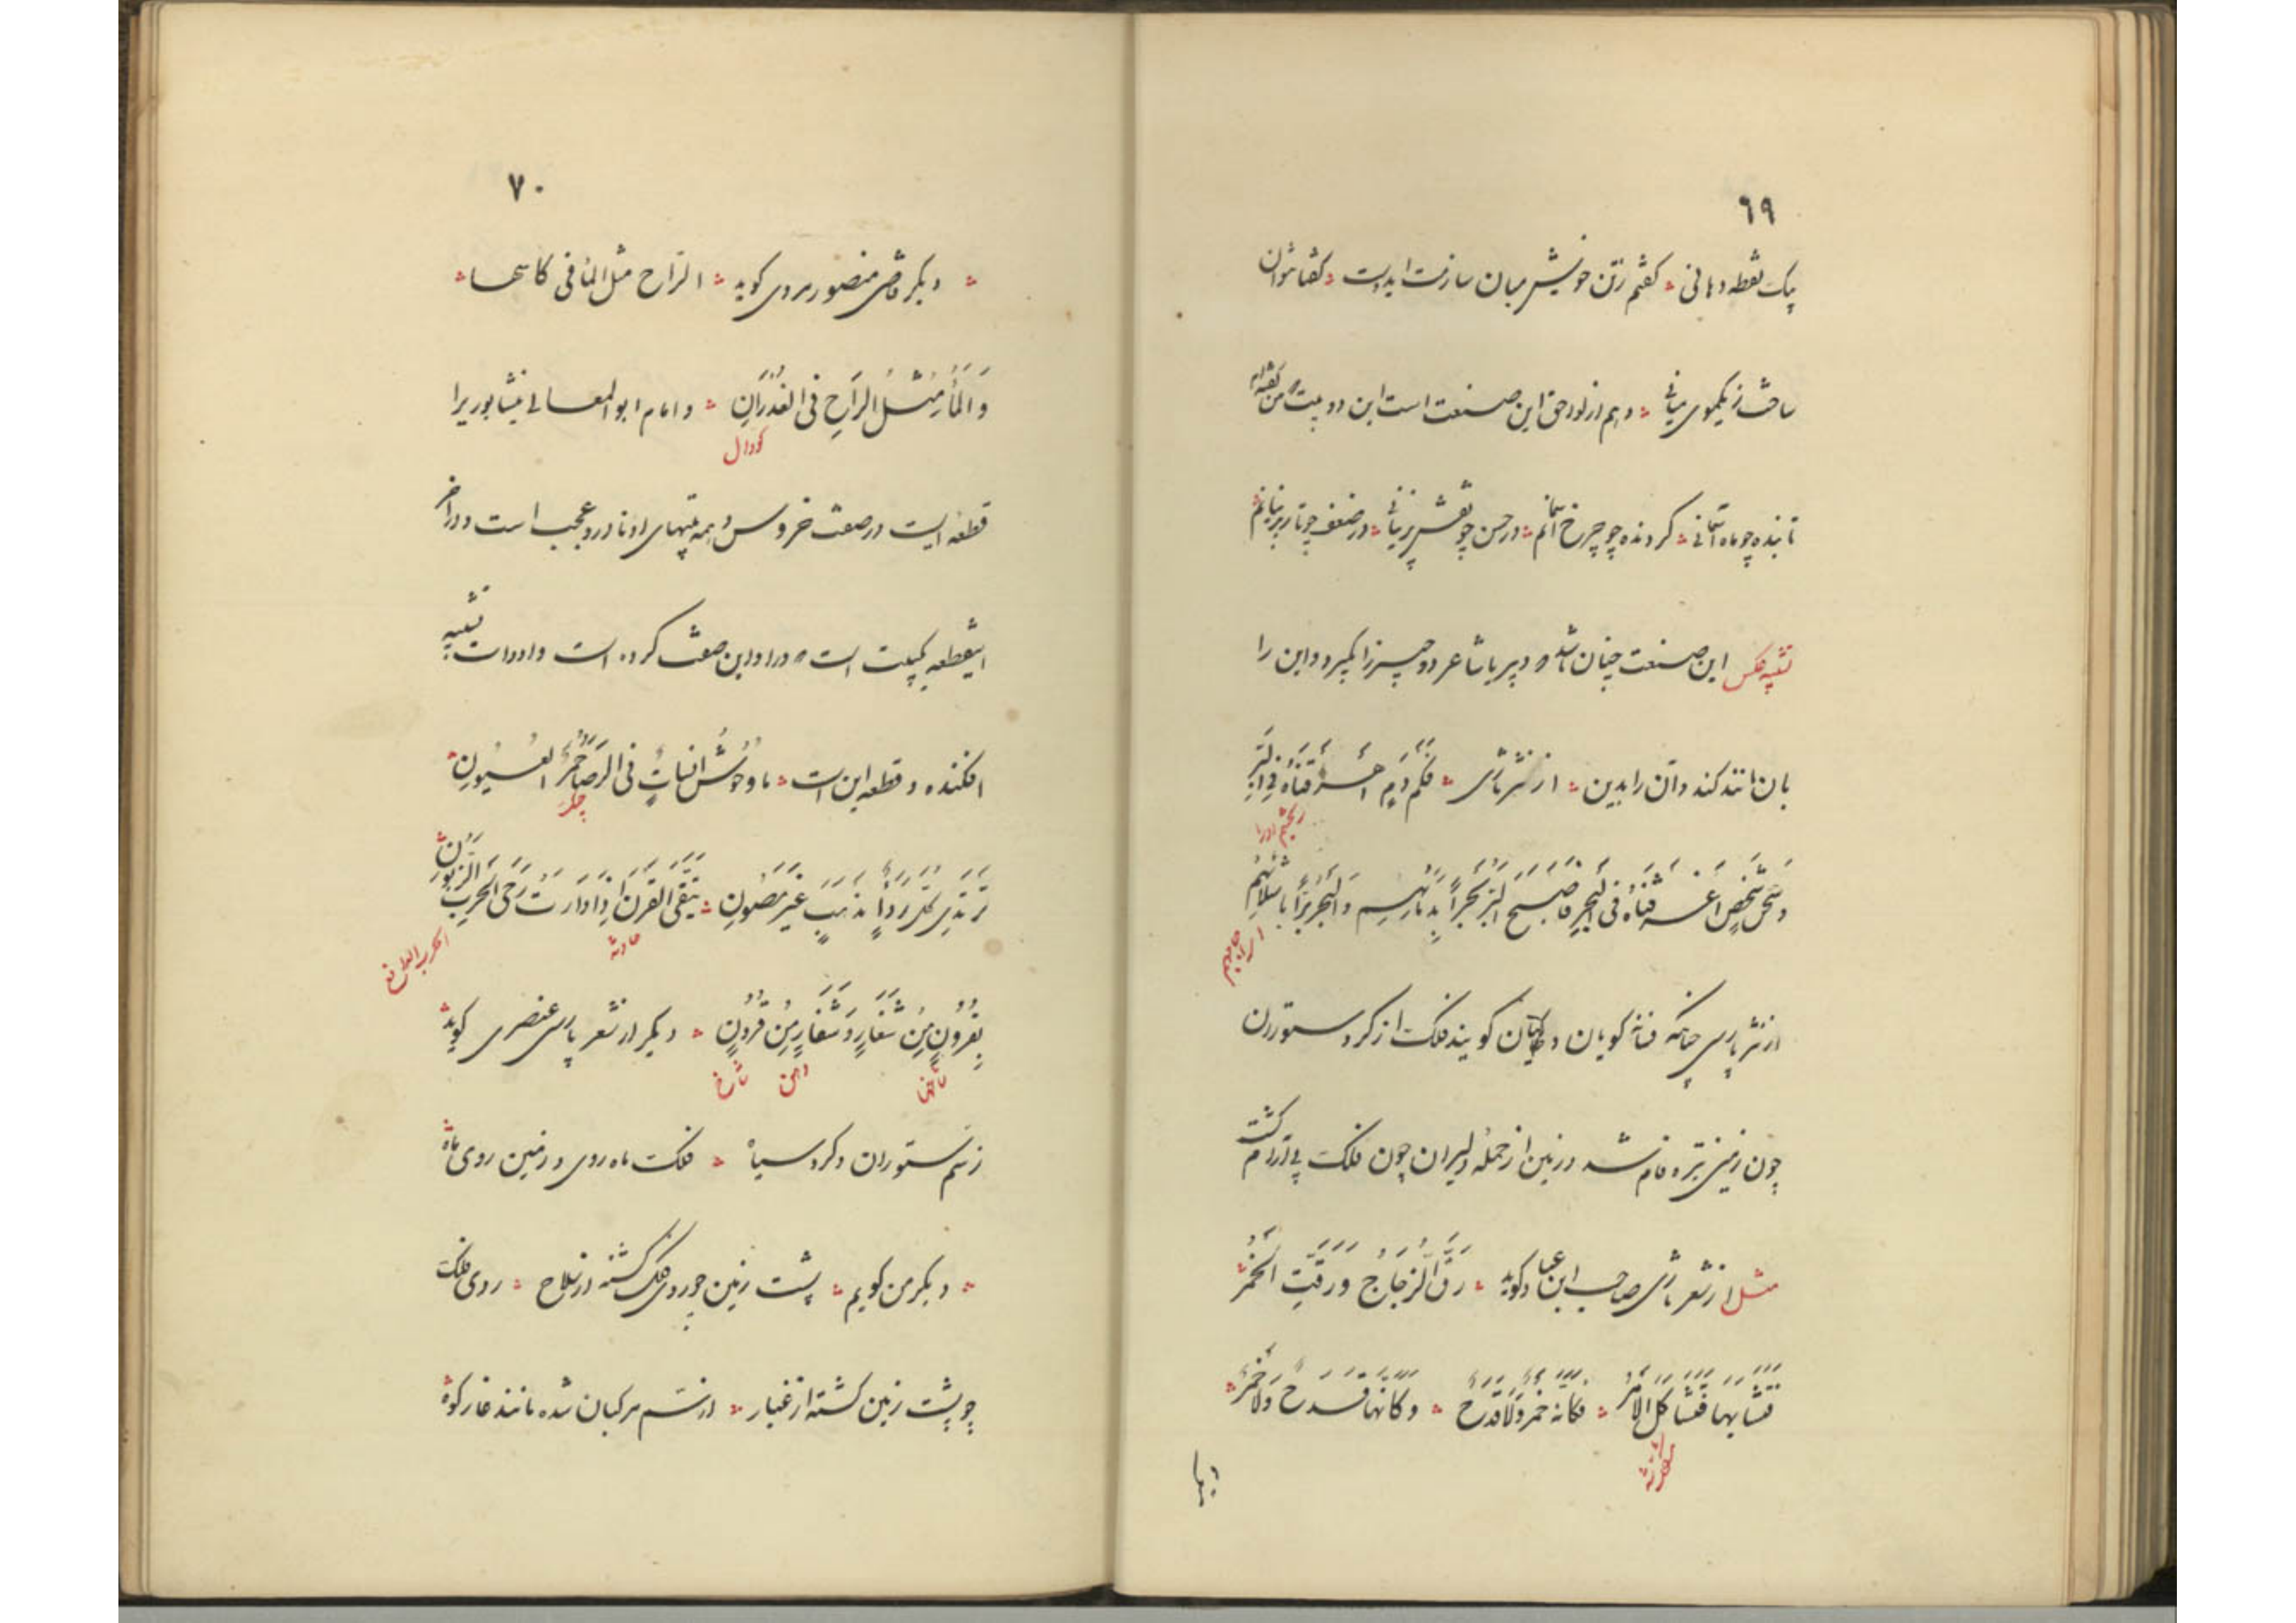 ٦٩
یک نقطه دهانی گفتم زتن خویش میان سازمت ایدوست گفتا نتوان
ساخت زیکموی میانی وهم از لواحق این صنعت است این دو بیت من گفته‌ام
تابنده چو ماه آسمانی گردنده چو چرخ آسمانم در حسن چو نقش پرنیانی در ضعف چو تار پرنیانم
تشبیه عکس این صنعت چنان باشد که دبیر یا شاعر دو چیز را بگیرد و این را
بان مانند کند و آن را بدین از نثر تازی فکم دَمٍ اَهْرَقناهُ فِی البَرِّ
ریختیم اورا
وَشَخصٍ اَغرَقناهُ فی البَحرِ فَاَصبَحَ البَرُّ بَحراً بِدِمائِهِم وَالبَحرُ بَرّاً بِاَشلائِهِم
از نثر پارسی چنانکه فسانه گویان گویند فلک از گرد ستوران
چون زمین تیره فام شد و زمین از حمله دلیران چون فلک بی آرام گشت
مثل از شعر تازی صاحب ابن عباد گوید رَقَّ الزُّجَاجُ وَرَقَّتِ الخَمْرُ
فَتَشَابَهَا فَتَشَاكَلَ الاَمْرُ فَكَاَنَّهُ خَمْرٌ وَلَا قَدَحٌ وَكَاَنَّهَا قَدَحٌ وَلَا خَمْرُ
٧٠
دیگر قاضی منصور هروی گوید الرّاح مثل الماء فی کاسها
وَالمَاءُ مِثْلُ الرَاحِ فِی الغُدْرَانِ و امام ابوالمعالی نیشابوریرا
گودال
قطعه ایست در صفت خروس و همه بیتهای او نادر و عجب است و در آخر
اینقطعه یکبیت است که درو این صفت کرده است و داد ادات تشبیه
افکنده و قطعه این است ما وحوش فی العُیُونِ
تَرتَدِی كُلَّ رِدَاءٍ مُذهَبٍ غَیرِ مَصُونِ یَتَّقِی القَرنَ اِذَا دَارَت رَحَی الحَربِ الزَّبُونِ
بِقُرُونٍ مِن شِفَارٍ وَشِفَارٍ مِن قُرُونِ دیگر از شعر پارسی عنصری گوید
ناخن شاخ
زسم ستوران و گرد سپاه فلک ماه روی و زمین روی ماه
دیگر من گویم پشت زمین چو روی فلک گشته از سلاح روی فلک
چو پشت زمین گشته از غبار از سم مرکبان شده مانند غار کوه